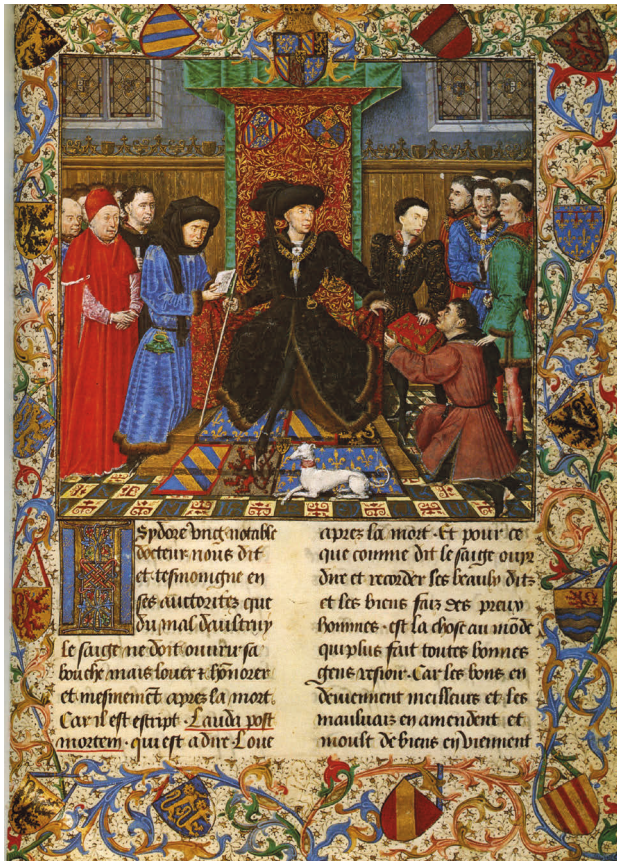 ISydore vng notable
docteur nous dit
et tesmoingne en
ses auctoritez que
du mal daultruy
le saige ne doit ouurir sa
bouche mais louer ⁊ hōnorer
et mesmemēt aprez la mort.
Car il est escript. Lauda post
mortem. qui est a dire Loue
aprez la mort. Et pour ce
que comme dit le saige ouyr
dire et recorder les beaulx ditz
et les biens faiz des preux
hommes. est la chose au mōde
qui plus fait toutes bonnes
gens resioir. Car les bons en
deuiennent meilleurs et les
mauluais en amendent et
moult de biens en viennent